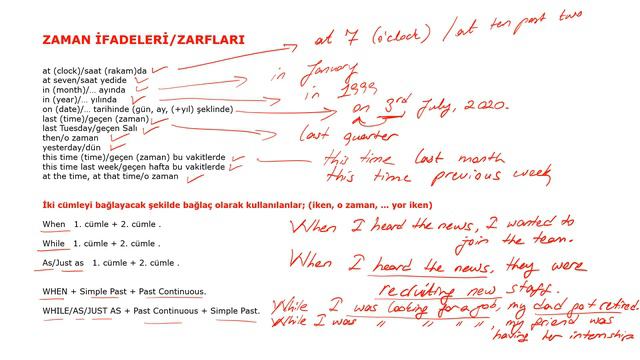 ZAMAN İFADELERİ/ZARFLARI
at 7 (o'clock) / at ten past two
at (clock)/saat (rakam)da
at seven/saat yedide
in January
in (month)/... ayında
in 1999
in (year)/... yılında
on (date)/... tarihinde (gün, ay, (+yıl) şeklinde)
on 3rd July, 2020.
last (time)/geçen (zaman)
last Tuesday/geçen Salı
last quarter
then/o zaman
yesterday/dün
this time (time)/geçen (zaman) bu vakitlerde
this time last month
this time last week/geçen hafta bu vakitlerde
this time previous week
at the time, at that time/o zaman
İki cümleyi bağlayacak şekilde bağlaç olarak kullanılanlar; (iken, o zaman, ... yor iken)
When 1. cümle + 2. cümle .
When I heard the news, I wanted to
join the team.
While 1. cümle + 2. cümle .
As/Just as 1. cümle + 2. cümle .
When I heard the news, they were
recruiting new staff.
WHEN + Simple Past + Past Continuous.
While I was looking for a job, my dad got retired.
WHILE/AS/JUST AS + Past Continuous + Simple Past.
While I was " " " ", my friend was
having her internship